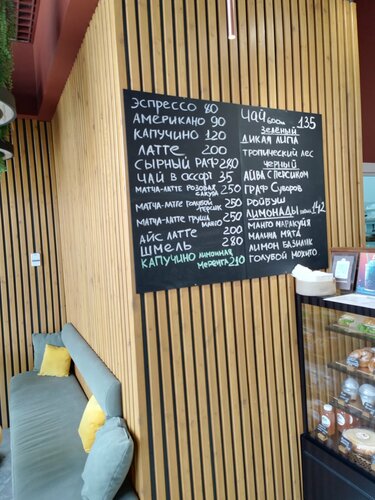 ЭСПРЕССО 80
АМЕРИКАНО 90
КАПУЧИНО 120
ЛАТТЕ 200
СЫРНЫЙ РАФ 280
ЧАЙ В АССОРТ 35
МАТЧА-ЛАТТЕ РОЗОВАЯ САКУРА 250
МАТЧА-ЛАТТЕ ГОЛУБОЙ ПЕРСИК 250
МАТЧА-ЛАТТЕ ГРУША МАНГО 250
АЙС ЛАТТЕ 200
ШМЕЛЬ 280
КАПУЧИНО ЛИМОННАЯ МЕРЕНГА 210
ЧАЙ 600мл 135
ЗЕЛЁНЫЙ
ДИКАЯ ЛИПА
ТРОПИЧЕСКИЙ ЛЕС
ЧЕРНЫЙ
АЙВА С ПЕРСИКОМ
ГРАФ СУВОРОВ
РОЙБУШ
ЛИМОНАДЫ 142
МАНГО МАРАКУЙЯ
МАЛИНА МЯТА
ЛИМОН БАЗИЛИК
ГОЛУБОЙ МОХИТО